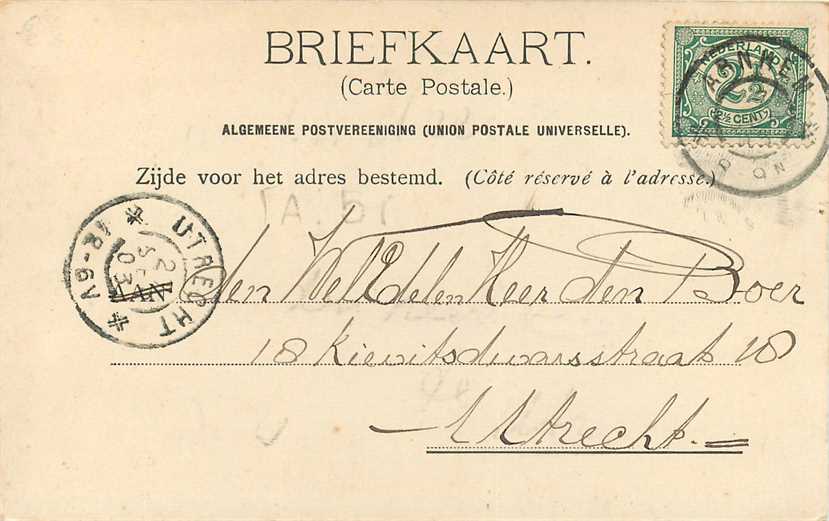 BRIEFKAART.
(Carte Postale.)
ALGEMEENE POSTVEREENIGING (UNION POSTALE UNIVERSELLE).
Zijde voor het adres bestemd. (Côté réservé à l'adresse.)
NEDERLAND
2½
(2½ CENT)
ARNHEM
UTRECHT
12-6V
2
03
den WelEdelen Heer Den Boer
18 Kievitsdwarsstraat 18
Utrecht.